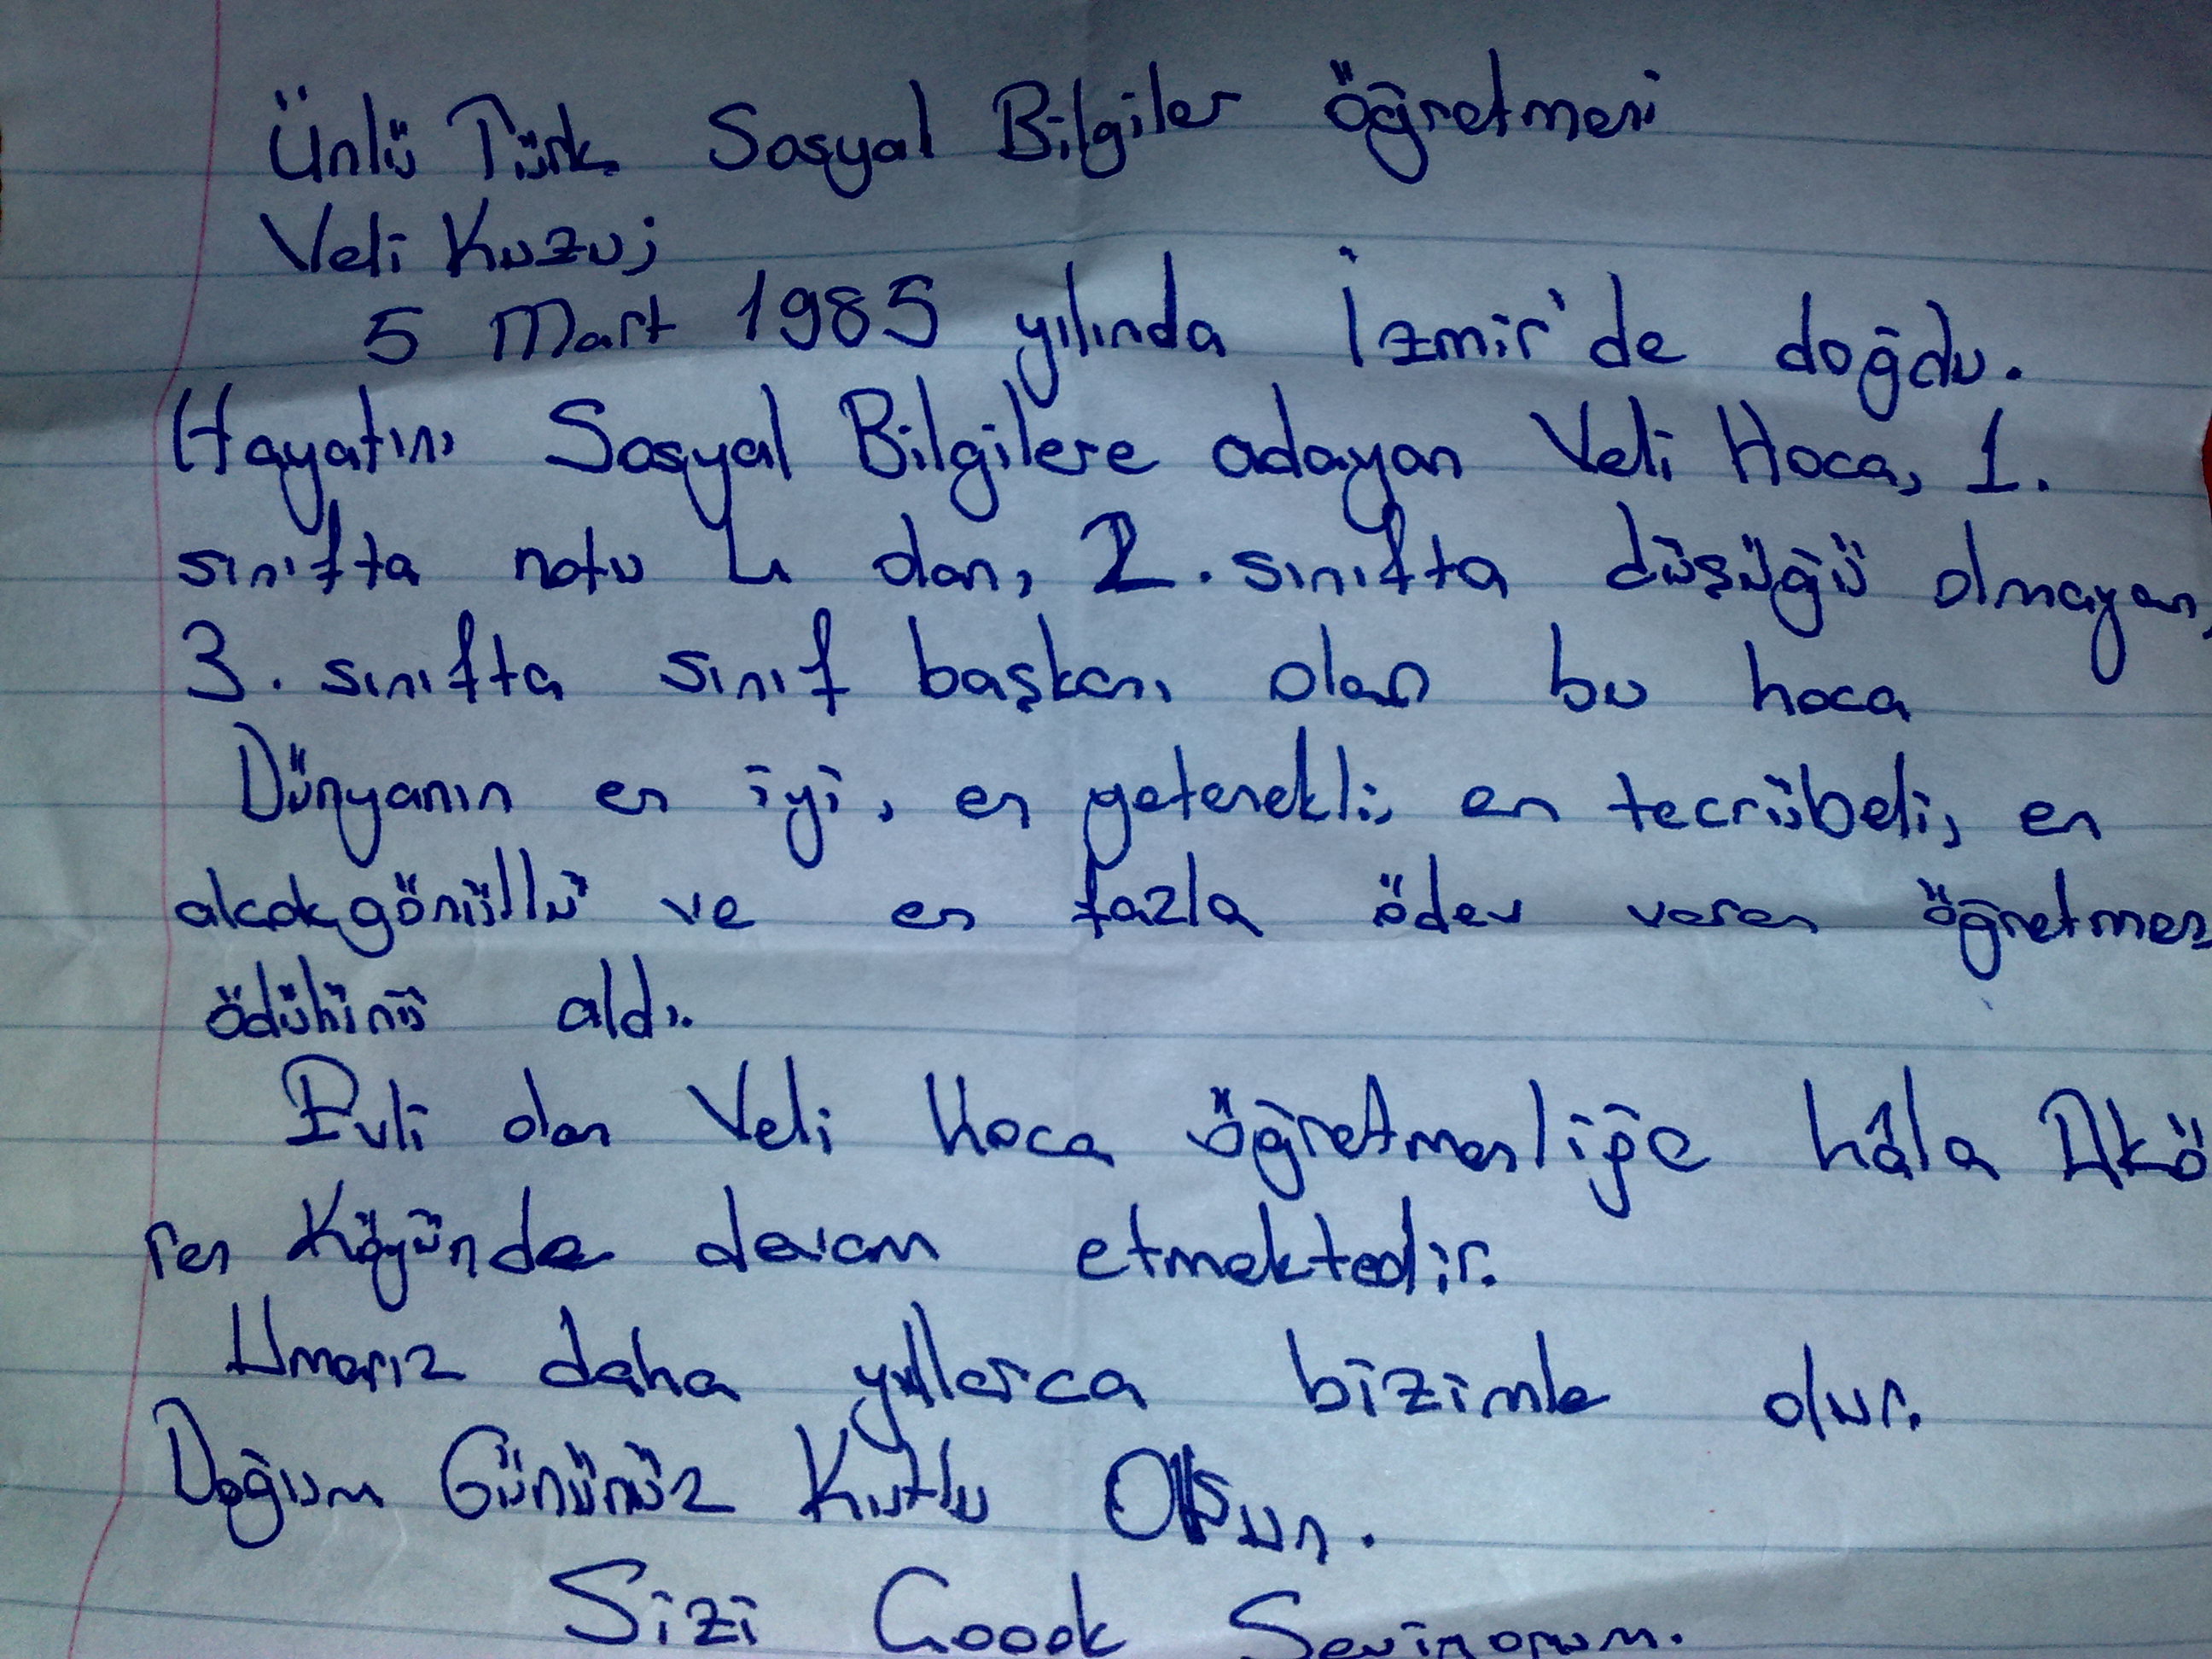 Ünlü Türk Sosyal Bilgiler öğretmeni
Veli Kuzu;
5 Mart 1985 yılında İzmir'de doğdu.
Hayatını Sosyal Bilgilere adayan Veli Hoca, 1.
sınıfta notu 4 olan, 2. sınıfta düşüğü olmayan,
3. sınıfta sınıf başkanı olan bu hoca
Dünyanın en iyi, en yetenekli, en tecrübeli, en
alcakgönüllü ve en fazla ödev veren öğretmen
ödülünü aldı.
Evli olan Veli Hoca öğretmenliğe hâla Akö
ren Köyünde devam etmektedir.
Umarız daha yıllarca bizimle olur.
Doğum Gününüz Kutlu Olsun.
Sizi Coook Seviyorum.